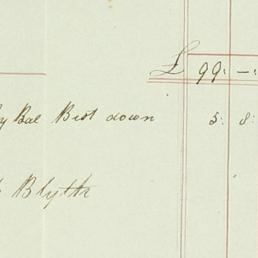 £ 99: –:
By Bal Brot down 5: 8:
Blyth